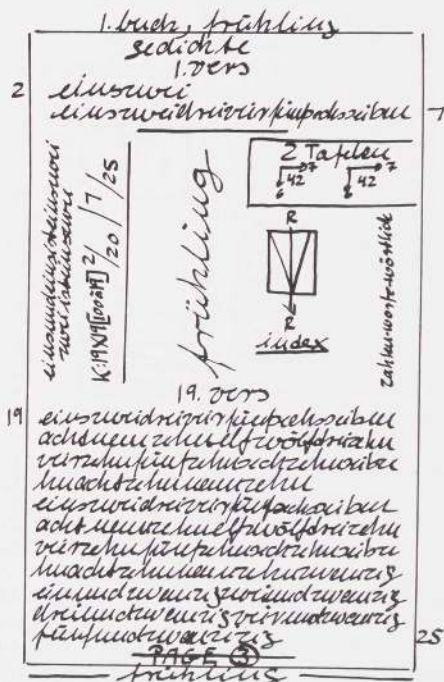 1. buch, frühling
gedichte
1. vers
2 einszwei
einszweidreivierfünfsechssieben 7
einsundeinsisteinszwei
zweiisteinszwei
K:19×19[100à19] 2/20/7/25
frühling
2 Tafeln
6 42 7
6 42 7
R
R
index
zahlen-worte-wörtlich
19. vers
19 einszweidreivierfünfsechssieben
achtneunzehnelfzwölfdreizehn
vierzehnfünfzehnsechzehnsiebze
hnachtzehnneunzehn
einszweidreivierfünfsechssieben
achtneunzehnelfzwölfdreizehn
vierzehnfünfzehnsechzehnsiebze
hnachtzehnneunzehnzwanzig
einundzwanzigzweiundzwanzig
dreiundzwanzigvierundzwanzig
fünfundzwanzig 25
PAGE 3
frühling